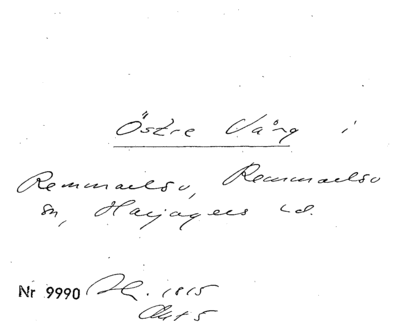 Östre Vång i
Remmarlöv, Remmarlöv
sn, Harjagers hd.
Nr 9990 Sk. 1815
Akt 5